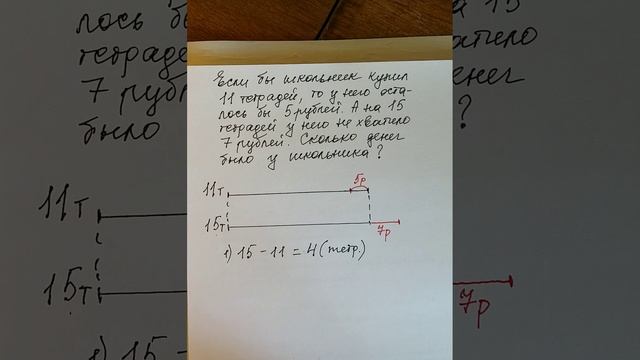 Если бы школьник купил
11 тетрадей, то у него оста-
лось бы 5 рублей. А на 15
тетрадей у него не хватило
7 рублей. Сколько денег
было у школьника?
5р
11т
15т
7р
1) 15 - 11 = 4 (тетр.)